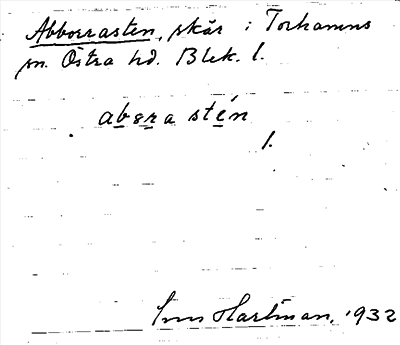 Abborrasten, skär i Torhamns
sn. Östra hd. Blek. l.
abəra stén
l.
Hartman, 1932